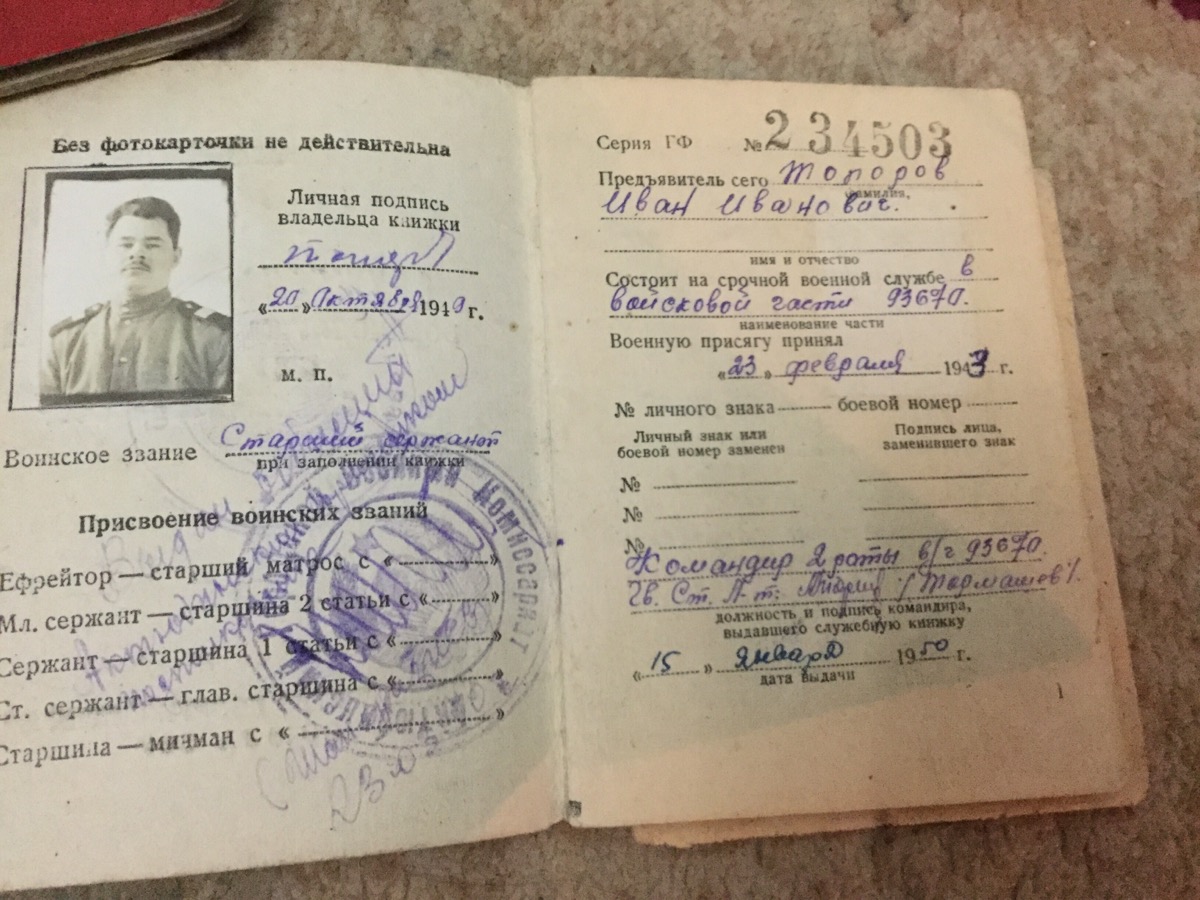 Без фотокарточки не действительна
Личная подпись
владельца книжки
«20» Октября 1949 г.
м. п.
Воинское звание Старший сержант
при заполнении книжки
Присвоение воинских званий
Ефрейтор — старший матрос с « »
Мл. сержант — старшина 2 статьи с « »
Сержант — старшина 1 статьи с « »
Ст. сержант — глав. старшина с « »
Старшина — мичман с « »
Серия ГФ № 234503
Предъявитель сего Топоров
фамилия,
Иван Иванович.
имя и отчество
Состоит на срочной военной службе в
войсковой части 93670.
наименование части
Военную присягу принял
«23» февраля 1943 г.
№ личного знака боевой номер
Личный знак или
боевой номер заменен
Подпись лица,
заменившего знак
№
№
№
Командир 2 роты в/ч 93670.
Гв. Ст. Л-т:
должность и подпись командира,
выдавшего служебную книжку
«15» января 1950 г.
дата выдачи
1